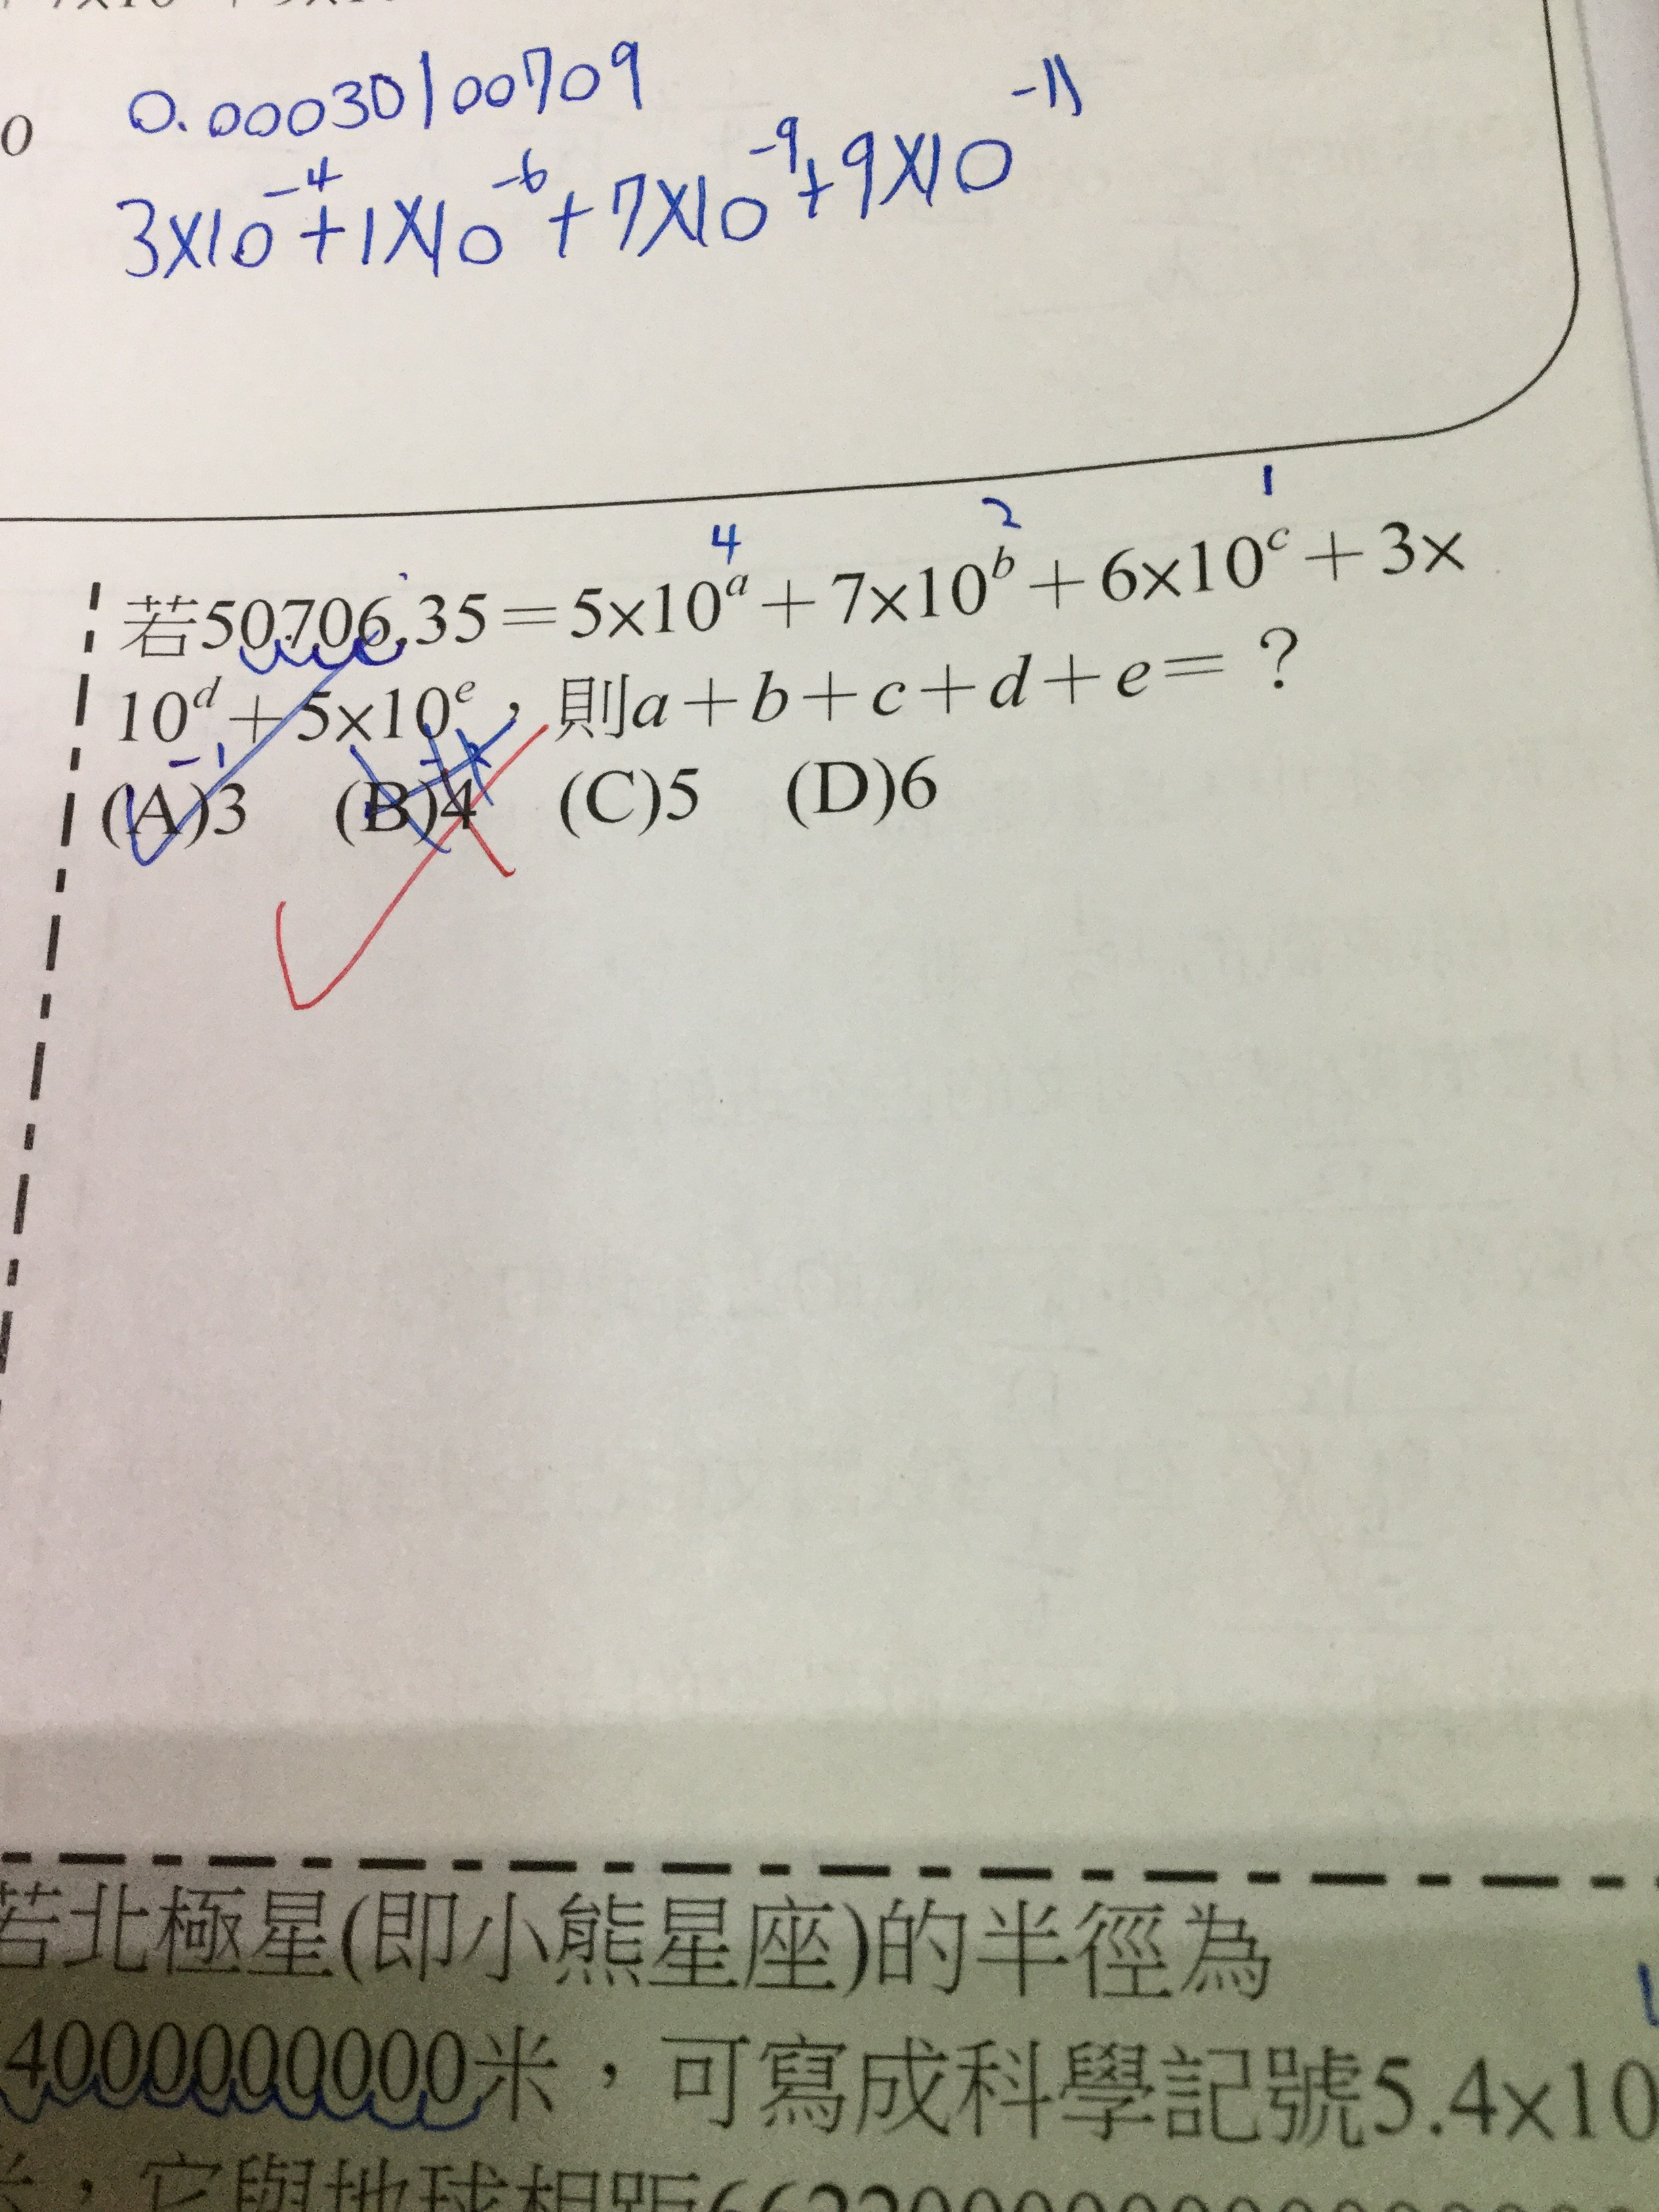 0
0.00030100709
3×10⁻⁴+1×10⁻⁶+7×10⁻⁹+9×10⁻¹¹
4 2 1
若50706.35=5×10ᵃ+7×10ᵇ+6×10ᶜ+3×
10ᵈ+5×10ᵉ,則a+b+c+d+e=?
-1
(A)3 (B)4 (C)5 (D)6
若北極星(即小熊星座)的半徑為
4000000000米,可寫成科學記號5.4×10
它與地球相距